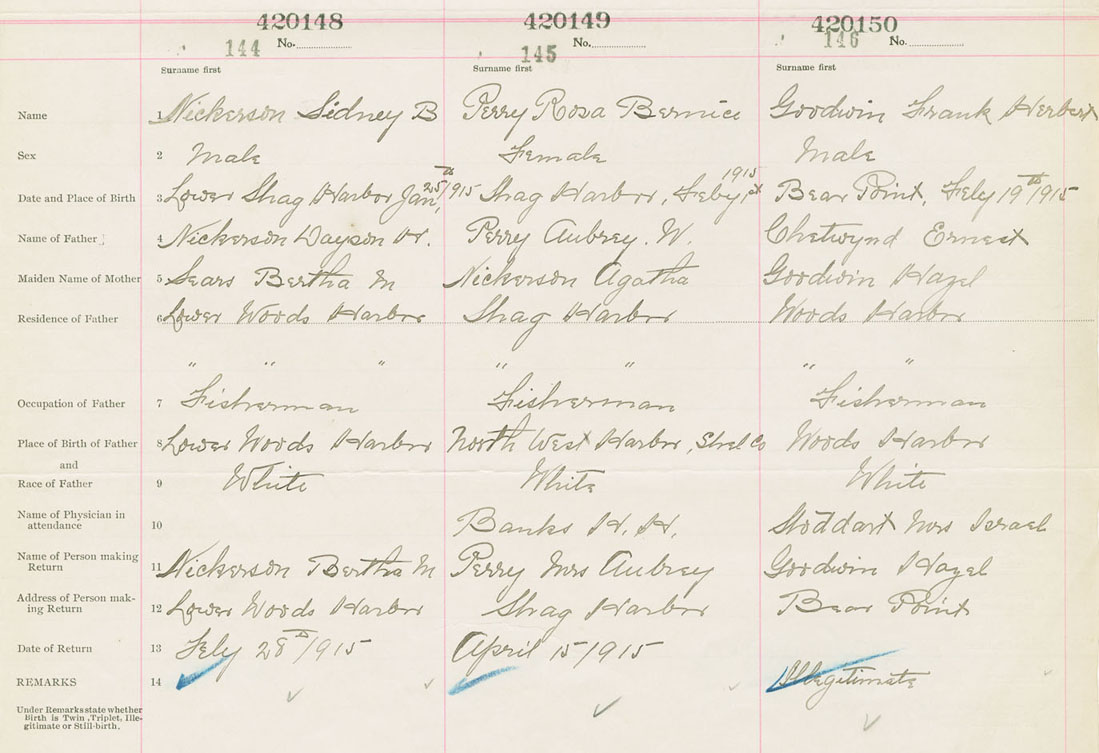 420148 420149 420150
144 No. 145 No. 146 No.
Surname first Surname first Surname first
Name 1 Nickerson Sidney B Perry Rosa Bernice Goodwin Frank Herbert
Sex 2 Male Female Male
Date and Place of Birth 3 Lower Shag Harbor Jan 25th/1915 Shag Harbor, Feby 1st 1915 Bear Point, Feby 19th 1915
Name of Father 4 Nickerson H. Perry Aubrey. W. Chetwynd Ernest
Maiden Name of Mother 5 Sears Bertha M Nickerson Agatha Goodwin Hazel
Residence of Father 6 Lower Woods Harbor Shag Harbor Woods Harbor
" " " " " " "
Occupation of Father 7 Fisherman Fisherman Fisherman
Place of Birth of Father 8 Lower Woods Harbor North West Harbor, Shel Co Woods Harbor
and
Race of Father 9 White White White
Name of Physician in
attendance 10 Banks H. H. Stoddart Mrs Israel
Name of Person making
Return 11 Nickerson Bertha M Perry Mrs Aubrey Goodwin Hazel
Address of Person mak-
ing Return 12 Lower Woods Harbor Shag Harbor Bear Point
Date of Return 13 Feby 28th/1915 April 15/1915
REMARKS 14 Illegitimate
Under Remarks state whether
Birth is Twin, Triplet, Ille-
gitimate or Still-birth.